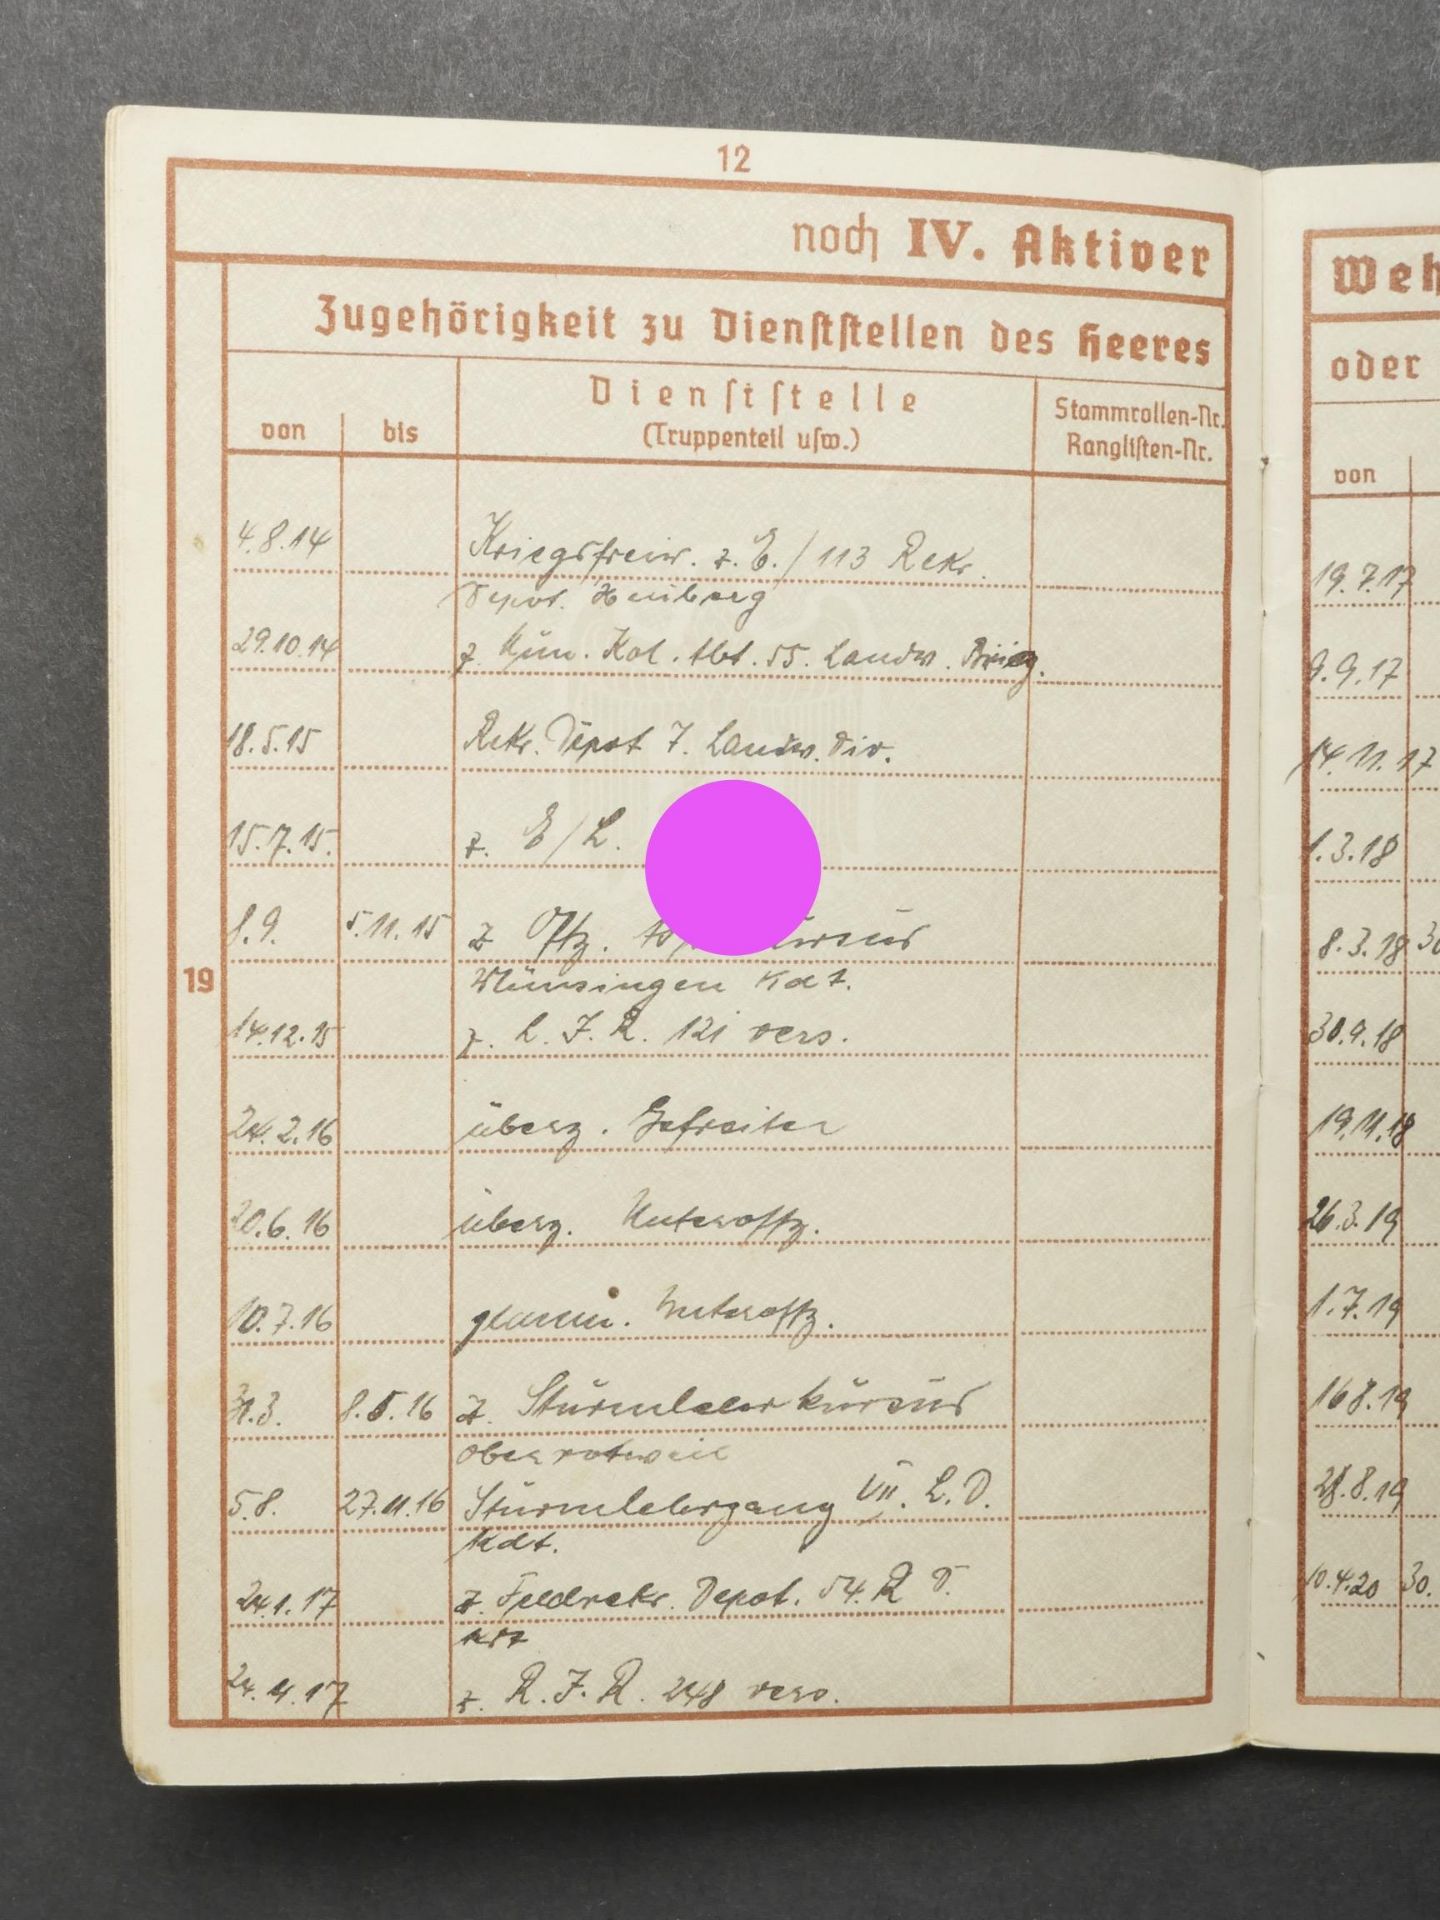 12
noch IV. Aktiver
Zugehörigkeit zu Dienststellen des Heeres
von bis Dienststelle Stammrollen-Nr.
(Truppenteil usw.) Ranglisten-Nr.
4.8.14 Kriegsfreiw. z. E./113 Rekr.
Depot. Heuberg
29.10.14 z. Mun. Kol. Abt. 55. Landw. Brig.
18.5.15 Rekr. Depot 7. Landw. Div.
15.7.15. z. E/L.
8.9. 5.11.15 z Offz.
19
Münsingen Kdt.
14.12.15 z. L. J. R. 121 vers.
24.2.16 überz. Gefreiter
20.6.16 überz. Unteroffz.
10.7.16 Unteroffz.
31.3. 8.5.16 z. Sturmlehrkursus
Oberrotweil
5.8. 27.11.16 Sturmlehrgang VII. L. D.
Kdt.
24.1.17 z. Feldrekr. Depot. 54. R D.
24.4.17 z. R. J. R. 248 vers.
Weh
oder
von
19.7.17
9.9.17
14.11.17
1.3.18
8.3.18 30
30.9.18
19.11.18
26.3.19
1.7.19
16 8.19
28.8.19
10.4.20 30.